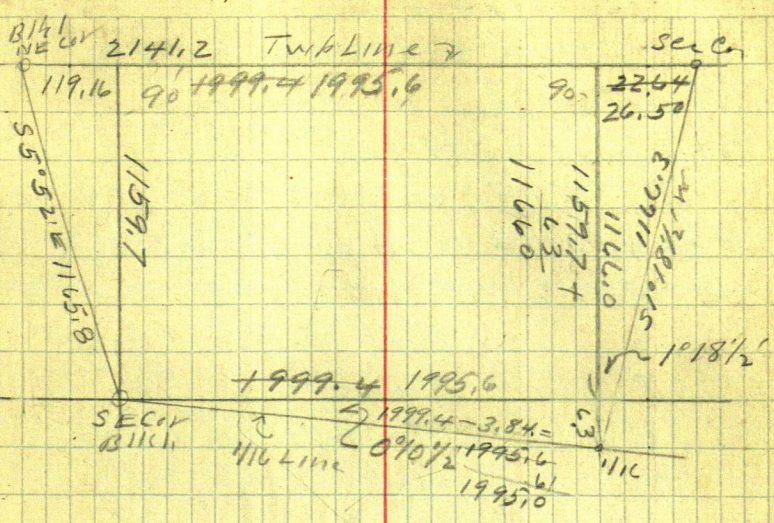 Blk1
NE Cor
2141.2 Twp Line
Sec Cor
119.16
90
1999.4 1995.6
90
22.64
26.50
S 5° 52' E 1165.8
1159.7
1159.7 +
6.3
1166.0
1166.0
S 1° 18 1/2' W 1166.3
1° 18 1/2'
1999.4 1995.6
6.3
SE Cor
Blk1
1/16 Line
1999.4 - 3.84 =
1995.6
61
1995.0
1/16